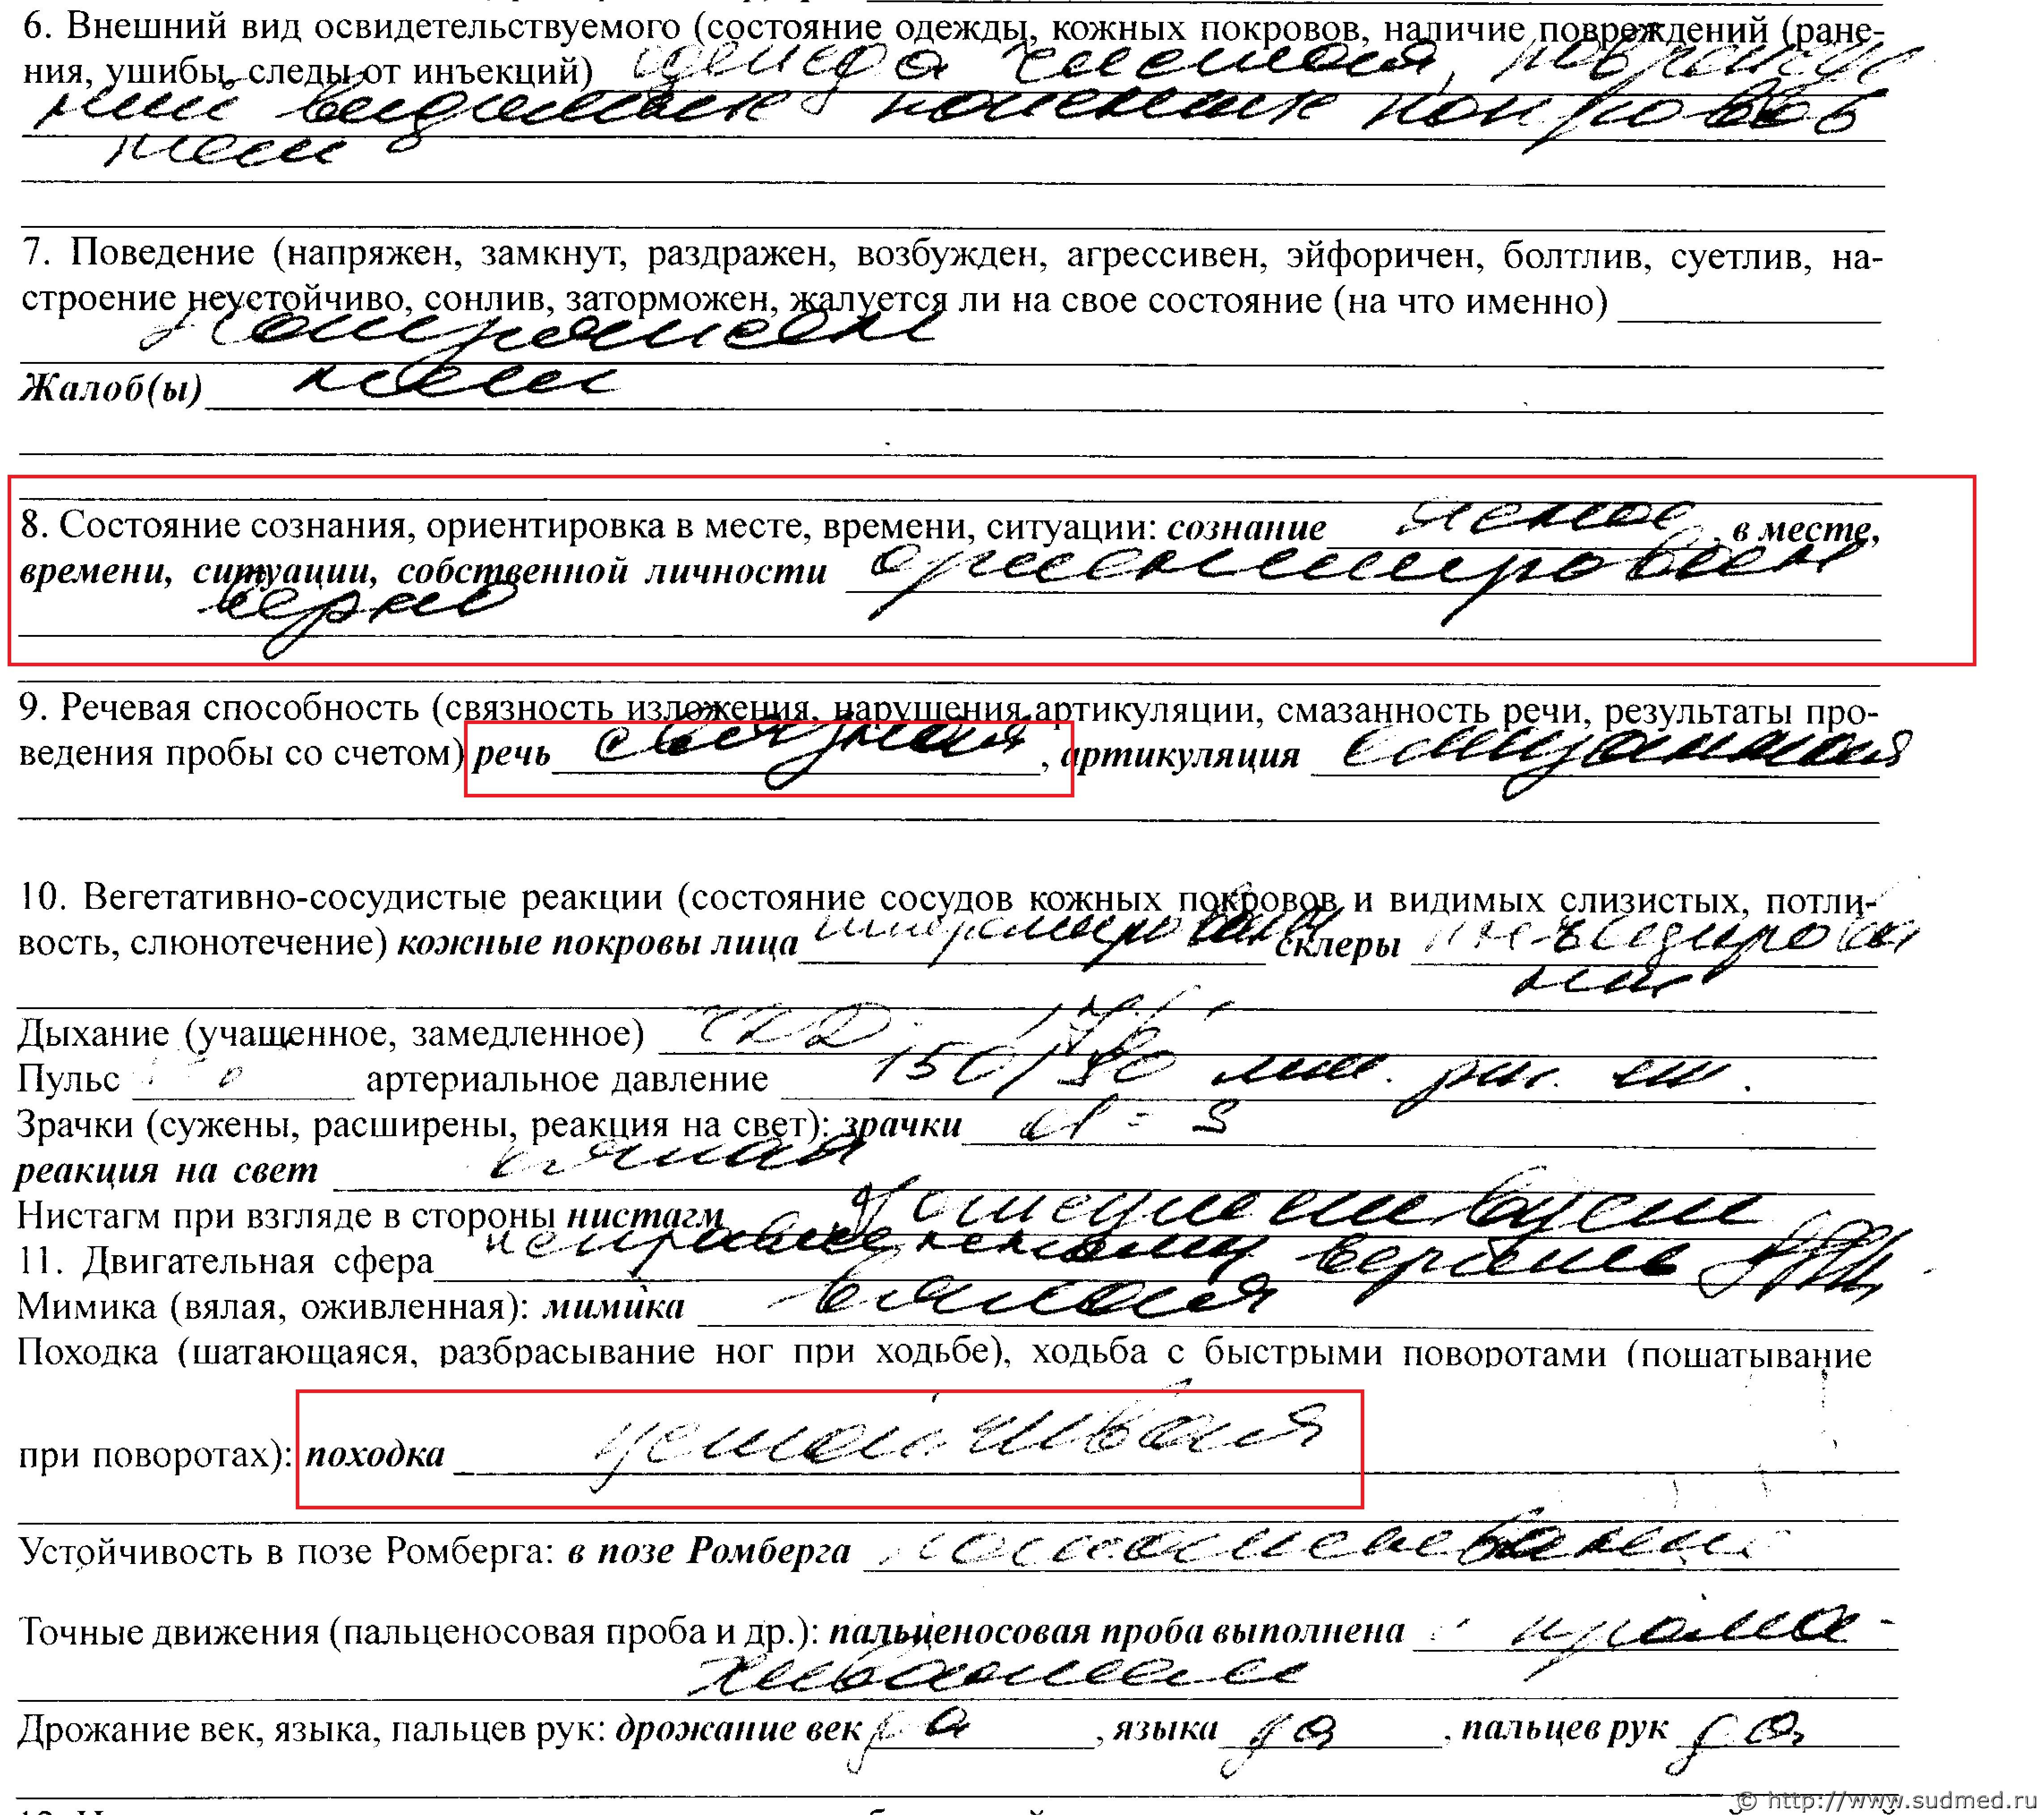 6. Внешний вид освидетельствуемого (состояние одежды, кожных покровов, наличие повреждений (ране-
ния, ушибы, следы от инъекций) одежда чистая, поврежде
ний видимых кожных покровов
нет
7. Поведение (напряжен, замкнут, раздражен, возбужден, агрессивен, эйфоричен, болтлив, суетлив, на-
строение неустойчиво, сонлив, заторможен, жалуется ли на свое состояние (на что именно)
напряжен
Жалоб(ы) нет
8. Состояние сознания, ориентировка в месте, времени, ситуации: сознание ясное, в месте,
времени, ситуации, собственной личности ориентирован
верно
9. Речевая способность (связность изложения, нарушения артикуляции, смазанность речи, результаты про-
ведения пробы со счетом) речь связная, артикуляция смазанная
10. Вегетативно-сосудистые реакции (состояние сосудов кожных покровов и видимых слизистых, потли-
вость, слюнотечение) кожные покровы лица склеры инъециров
Дыхание (учащенное, замедленное) ЧДД
Пульс артериальное давление 150/90 мм. рт. ст.
Зрачки (сужены, расширены, реакция на свет): зрачки = S
реакция на свет вялая
Нистагм при взгляде в стороны нистагм
11. Двигательная сфера исправленному верить
Мимика (вялая, оживленная): мимика вялая
Походка (шатающаяся, разбрасывание ног при ходьбе), ходьба с быстрыми поворотами (пошатывание
при поворотах): походка устойчивая
Устойчивость в позе Ромберга: в позе Ромберга пошатывание
Точные движения (пальценосовая проба и др.): пальценосовая проба выполнена с прома-
хиванием
Дрожание век, языка, пальцев рук: дрожание век да, языка да, пальцев рук да
© http://www.sudmed.ru